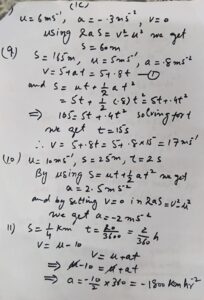 (1c)
u = 6ms⁻¹, a = -.3ms⁻², v = 0
using 2as = v² - u² we get
s = 60m
(9) s = 165m, u = 5ms⁻¹, a = .8ms⁻²
v = 5 + at = 5 + .8t —①
and s = ut + ½ at²
= 5t + ½ (.8) t² = 5t + .4t²
⇒ 165 = 5t + .4t² solving for t
we get t = 15s
∴ v = 5 + .8t = 5 + .8 × 15 = 17ms⁻¹
(10) u = 10ms⁻¹, s = 25m, t = 2s
By using s = ut + ½ at² we get
a = 2.5ms⁻²
and by setting v = 0 in 2as = v² - u²
we get a = -2ms⁻²
11) s = ¼ km t = 20/3600 = 2/360 h
v = u - 10
v = u + at
⇒ u - 10 = u + at
⇒ a = -10/2 × 360 = -1800 km hr⁻²